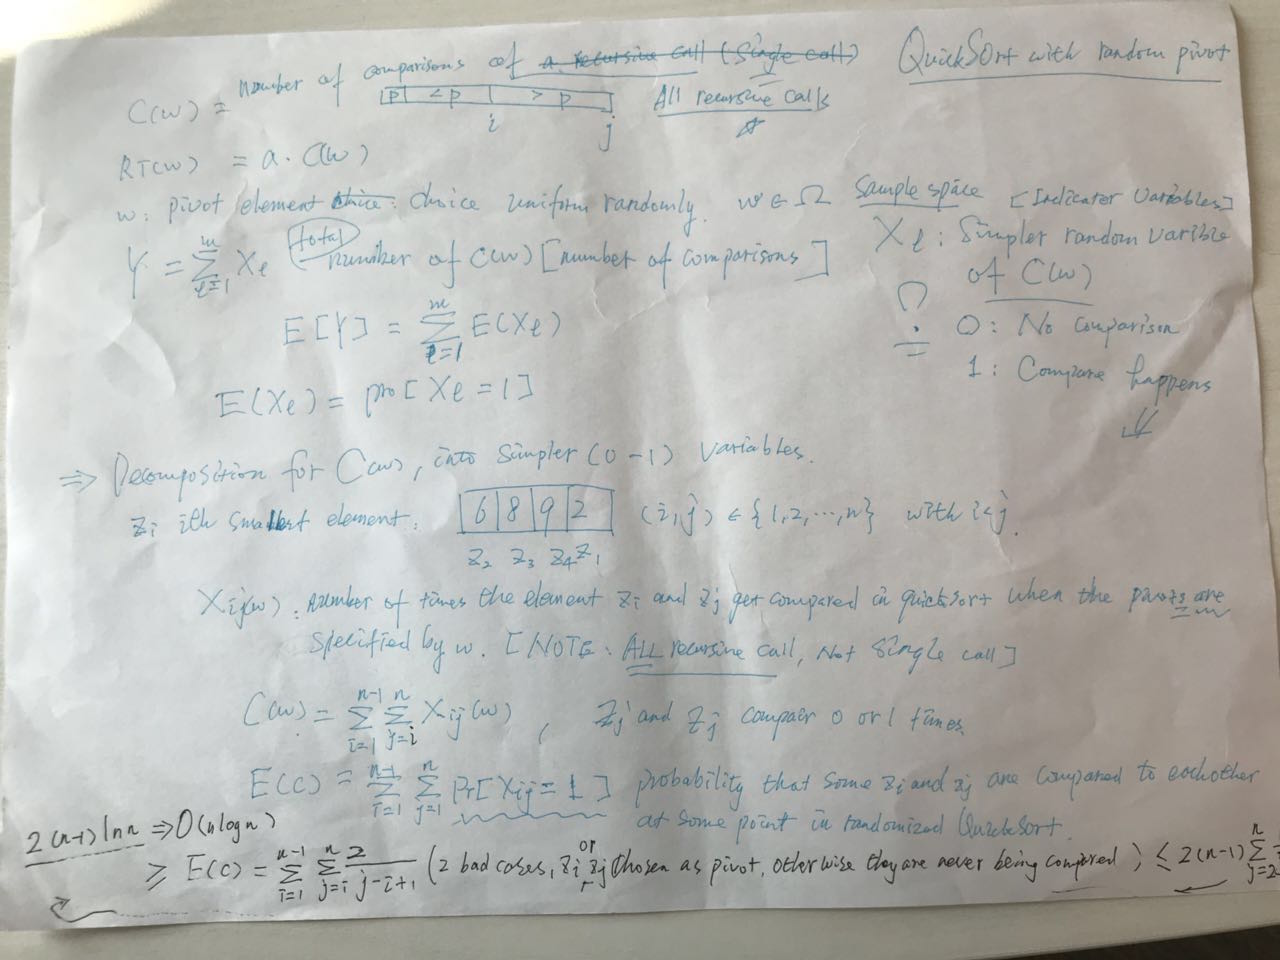 QuickSort with random pivot
C(w) = number of comparisons of a recursive call (single call)
p | < p | > p All recursive calls
i j
RT(w) = a · C(w)
w: pivot element choice: choice uniform randomly. w ∈ Ω Sample space [Indicator Variables]
Y = ∑_{ℓ=1}^{m} Xℓ total number of C(w) [number of comparisons] Xℓ: Simpler random varible
of C(w)
E[Y] = ∑_{ℓ=1}^{m} E(Xℓ) 0: No comparison
E(Xℓ) = pro[Xℓ = 1] 1: Compare happens
⇒ Decomposition for C(w), into Simpler (0-1) variables.
Zi ith smallest element: 6 | 8 | 9 | 2 (i,j) ∈ {1,2,...,n} with i<j.
Z2 Z3 Z4 Z1
Xij(w): number of times the element Zi and Zj get compared in quicksort when the pivots are
specified by w. [NOTE: ALL recursive call, Not Single call]
C(w) = ∑_{i=1}^{n-1} ∑_{j=i}^{n} Xij(w), Zj and Zj compair 0 or 1 times
E(C) = ∑_{i=1}^{n-1} ∑_{j=1}^{n} Pr[Xij = 1] probability that some Zi and Zj are compared to eachother
at some point in randomized QuickSort.
2(n-1) ln n ⇒ O(n log n)
≥ E(C) = ∑_{i=1}^{n-1} ∑_{j=i}^{n} 2/(j-i+1) (2 bad cases, Zi or Zj chosen as pivot, otherwise they are never being compared) ≤ 2(n-1) ∑_{j=2}^{n}